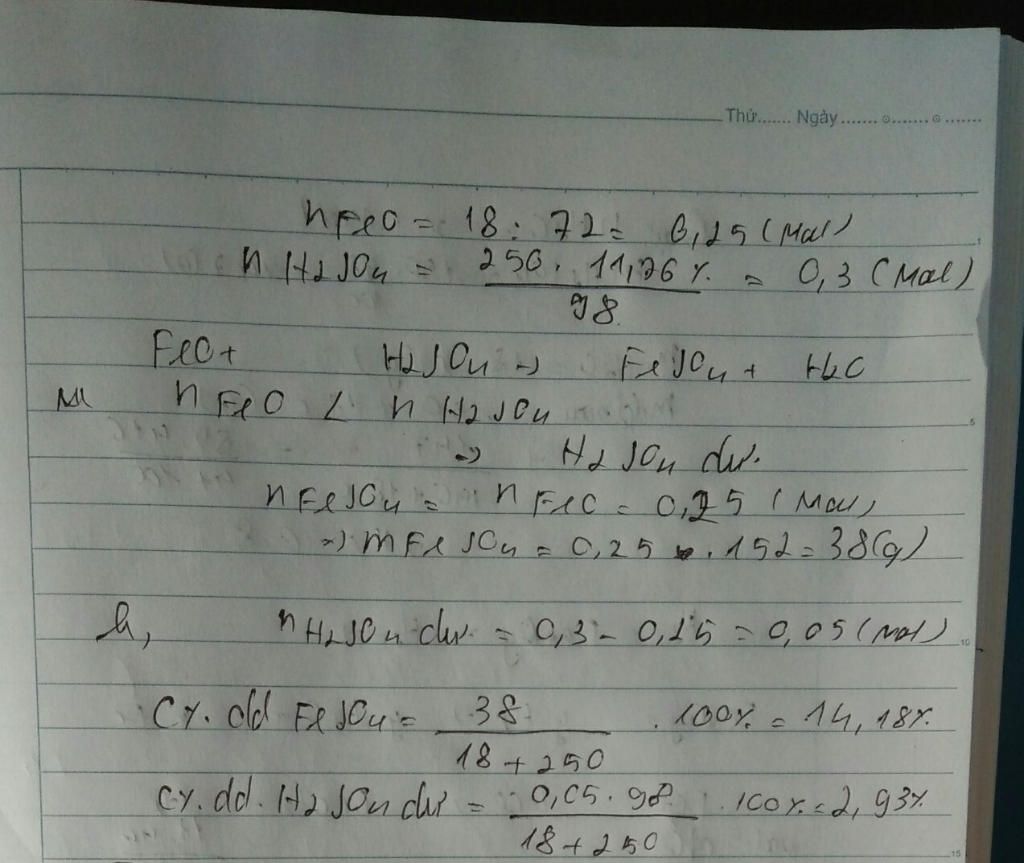 Thứ....... Ngày....... o....... o.......
nFeO = 18 : 72 = 0,25 (mol)
nH2SO4 = 250 . 11,76% / 98 = 0,3 (mol)
FeO + H2SO4 -> FeSO4 + H2O
nFeO < nH2SO4
=> H2SO4 dư.
nFeSO4 = nFeO = 0,25 (mol)
=> mFeSO4 = 0,25 . 152 = 38(g)
b, nH2SO4 dư = 0,3 - 0,25 = 0,05 (mol)
C%. dd FeSO4 = 38 / 18 + 250 . 100% = 14,18%
C%. dd. H2SO4 dư = 0,05 . 98 / 18 + 250 . 100% = 2,93%